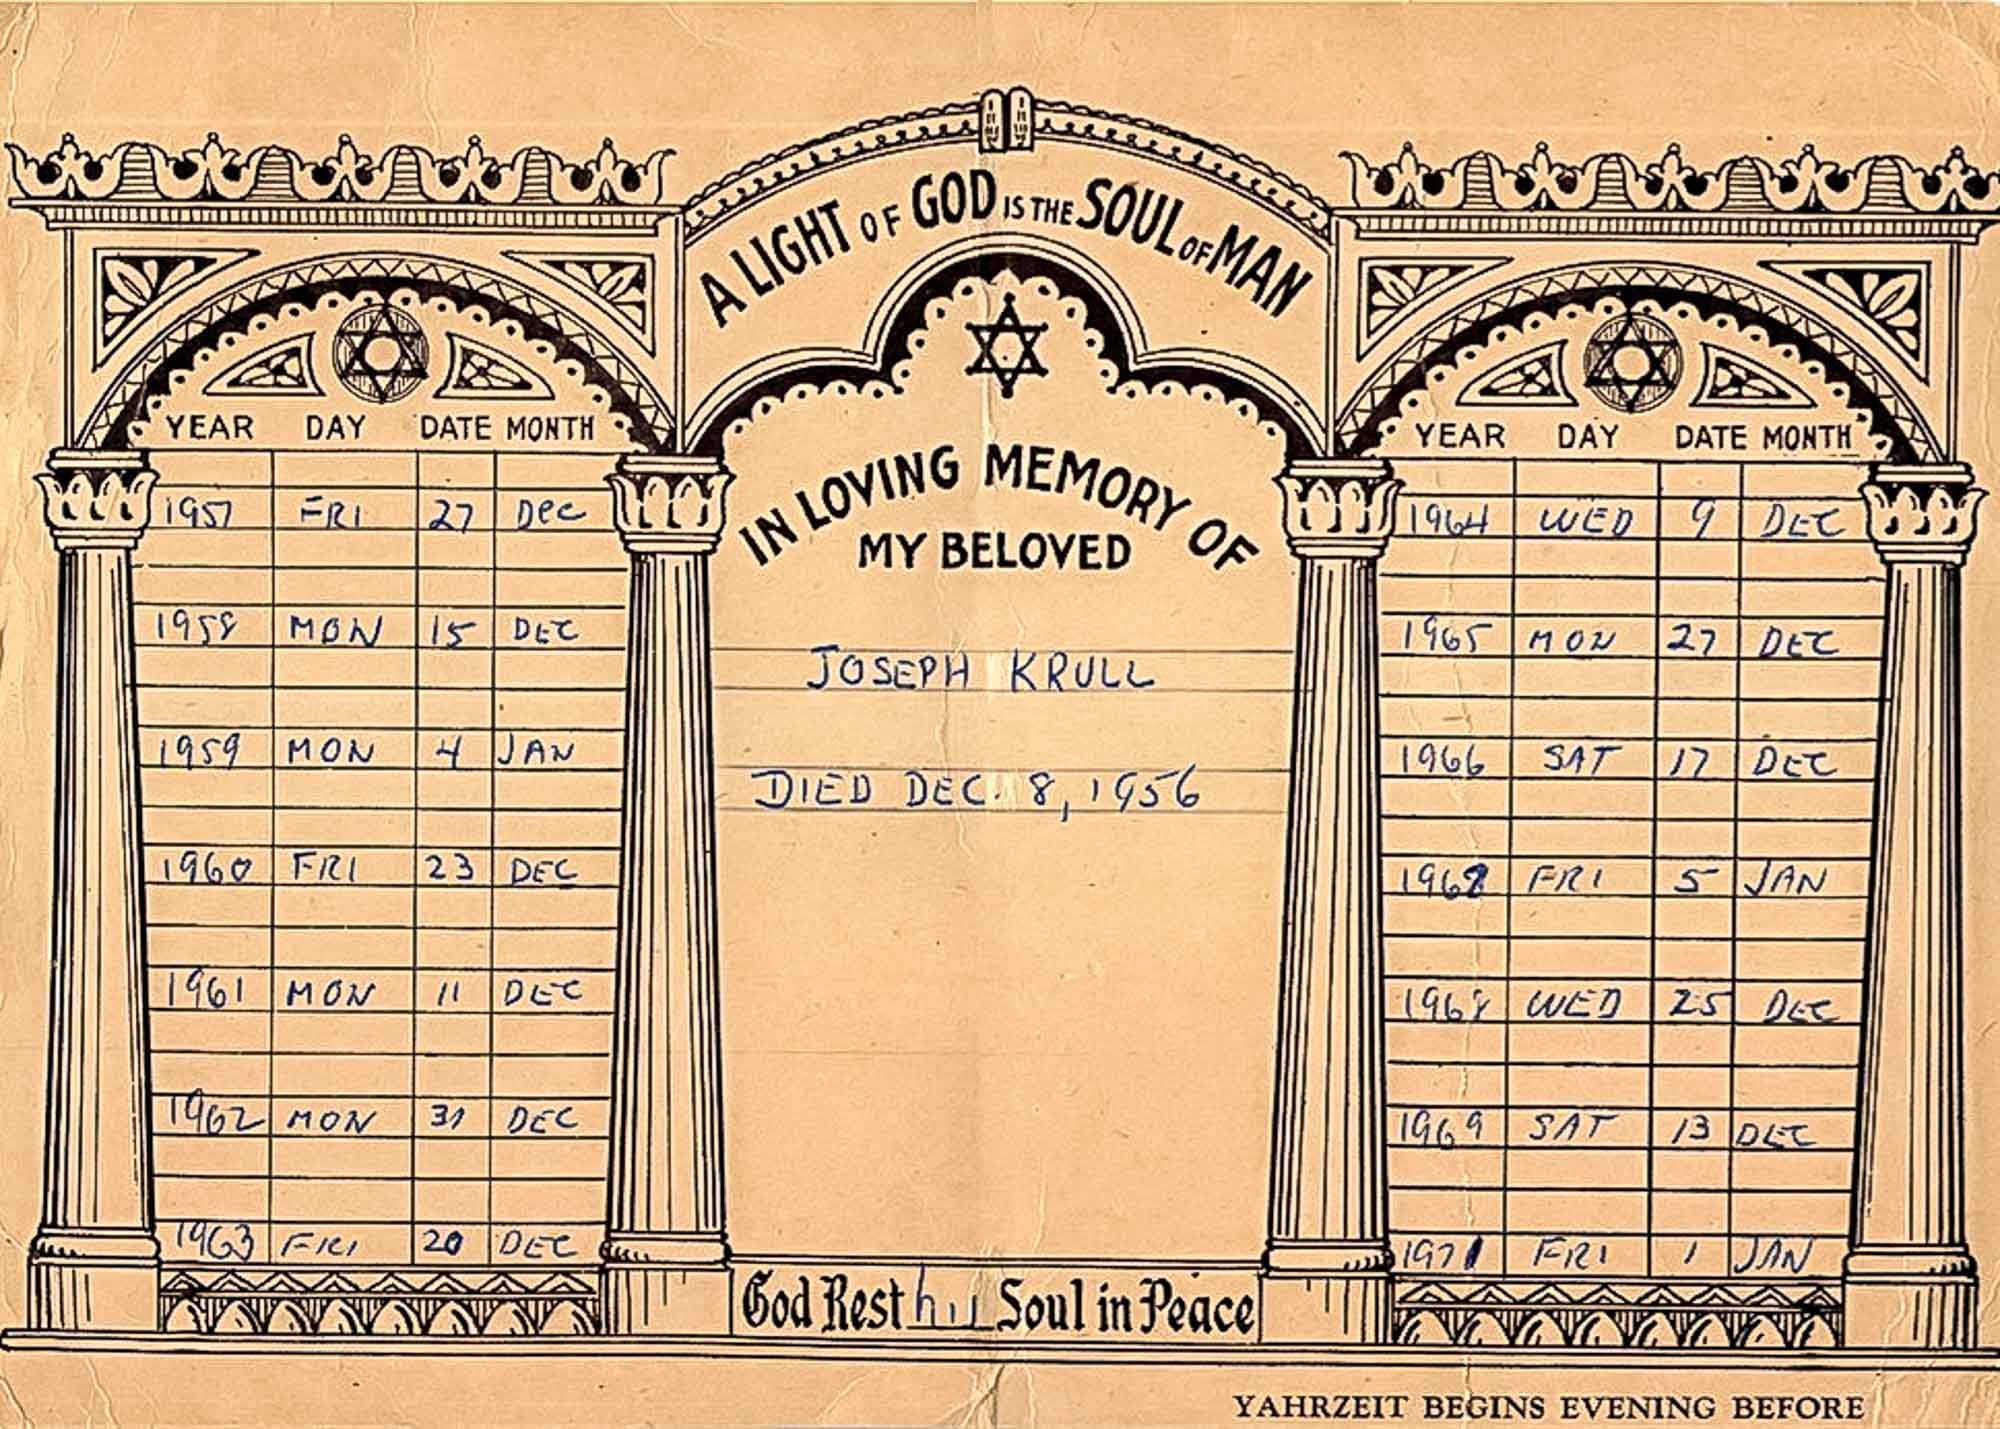 A LIGHT OF GOD IS THE SOUL OF MAN
YEAR DAY DATE MONTH
1957 FRI 27 DEC
1958 MON 15 DEC
1959 MON 4 JAN
1960 FRI 23 DEC
1961 MON 11 DEC
1962 MON 31 DEC
1963 FRI 20 DEC
IN LOVING MEMORY OF
MY BELOVED
JOSEPH KRULL
DIED DEC. 8, 1956
God Rest his Soul in Peace
YEAR DAY DATE MONTH
1964 WED 9 DEC
1965 MON 27 DEC
1966 SAT 17 DEC
1968 FRI 5 JAN
1968 WED 25 DEC
1969 SAT 13 DEC
1971 FRI 1 JAN
YAHRZEIT BEGINS EVENING BEFORE